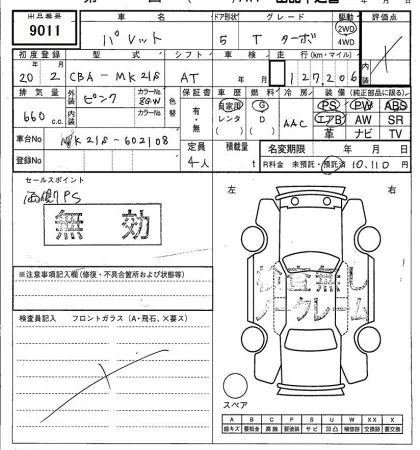 出品番号 車名 ドア形状 グレード 駆動 評価点
9011 パレット 5 T ターボ 2WD 4WD
初度登録 型式 シフト 車検 走行(km・マイル)
20 2 CBA-MK21S AT 年 月 127,206
排気量 外装 ピンク カラーNo. 色替 保証書 車歴 燃料 冷房 装備(純正部品に限る)
660 c.c. 内装 カラーNo. 有・無 自家用 レンタ G D AAC PS PW ABS
エアB AW SR
革 ナビ TV
車台No MK21S-602108 定員 4人 積載量 t 名変期限 年 月 日
登録No R料金 未預託・預託済 10,110 円
セールスポイント
両側PS
無効
左 右
検査無し
ノークレーム
※注意事項記入欄(修復・不具合箇所および状態等)
検査員記入 フロントガラス(A・飛石、×要ス)
スペア
A B C P S U W X XX
線キズ 要板金 腐蝕 要塗装 サビ 凹凸 補修跡 要交換